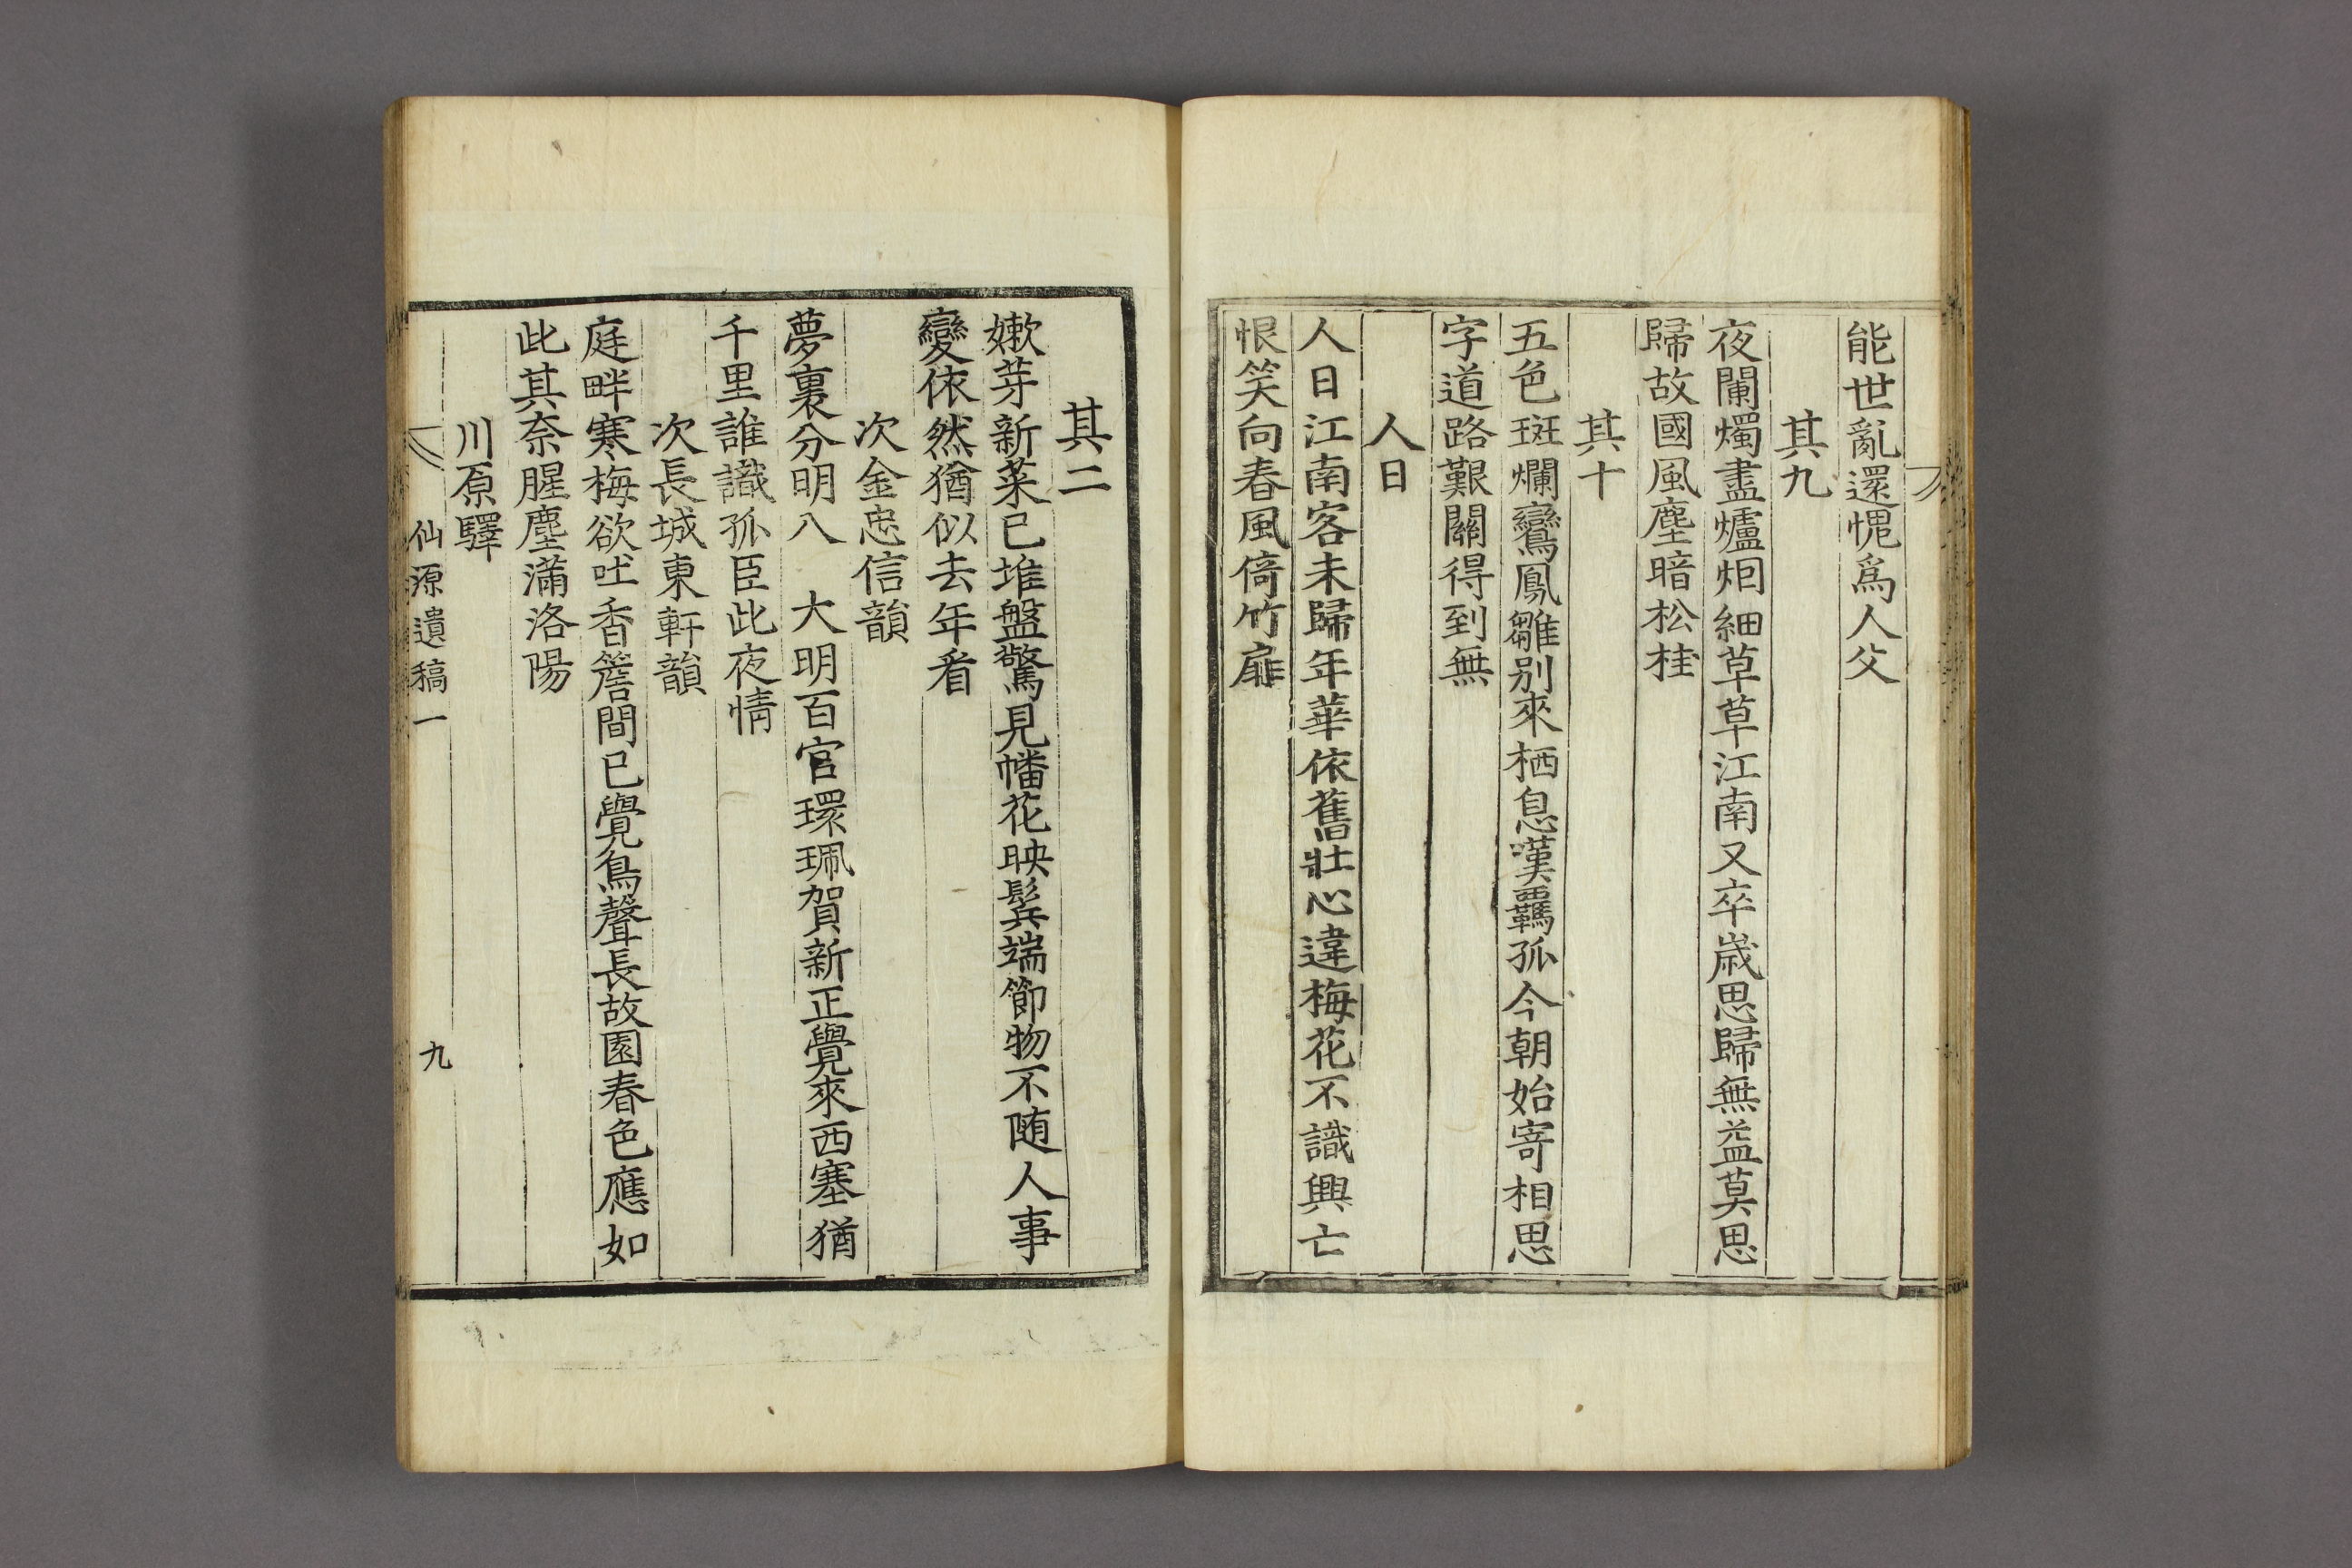 能世亂還愧爲人父
其九
夜闌燭盡爐烟細草草江南又卒歲思歸無益莫思
歸故國風塵暗松桂
其十
五色斑爛鸞鳳雛别來栖息嘆羈孤今朝始寄相思
字道路艱關得到無
人日
人日江南客未歸年華依舊壯心違梅花不識興亡
恨笑向春風倚竹扉
其二
嫰芽新菜已堆盤驚見幡花映鬂端節物不随人事
變依然猶似去年看
次金忠信韻
夢裏分明八 大明百官環珮賀新正覺來西塞猶
千里誰識孤臣此夜情
次長城東軒韻
庭畔寒梅欲吐香簷間已覺鳥聲長故園春色應如
此其奈腥塵滿洛陽
川原驛
仙源遺稿一
九